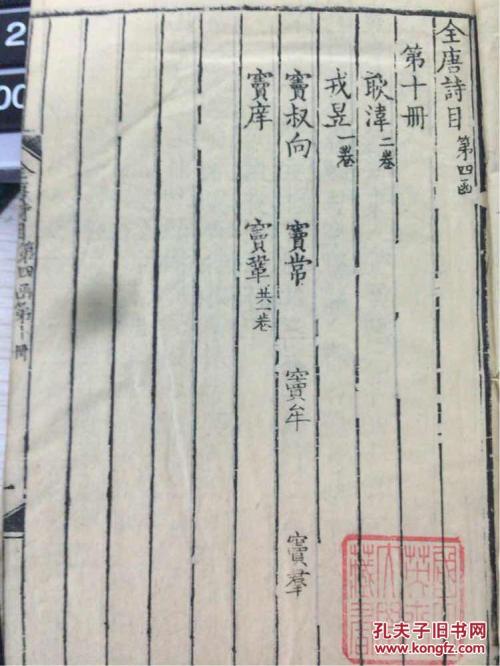 全唐詩目 第四函
第十冊
耿湋 二卷
戎昱 一卷
竇叔向 竇常 竇牟 竇羣
竇庠 竇鞏 共一卷
全唐詩目 第四函第十冊
2
00
孔夫子旧书网
www.kongfz.com